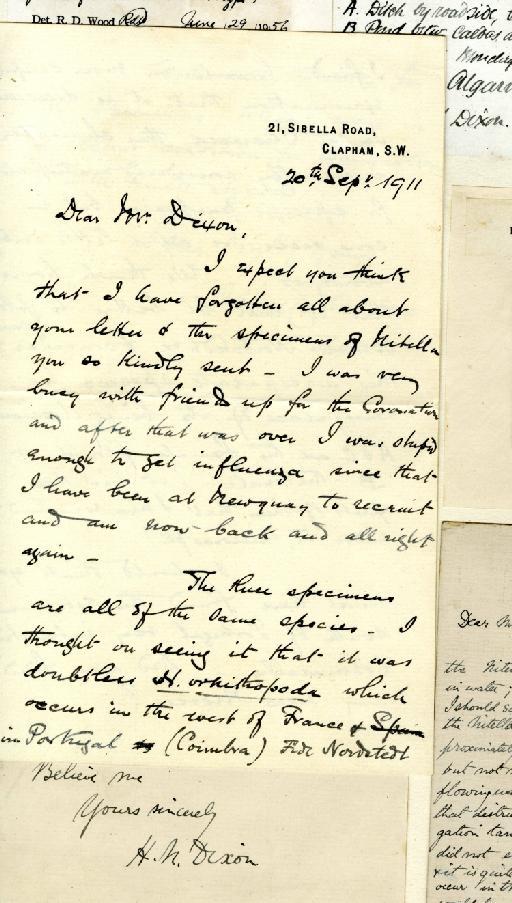 Det. R. D. Wood RDW June 29 1956
A. Ditch by roadside,
B Pond betw. Caldas
Algarv
Dixon.
21, SIBELLA ROAD,
CLAPHAM, S.W.
20th Sepr. 1911
Dear Mr. Dixon,
I expect you think
that I have forgotten all about
your letter & the specimens of Nitella
you so kindly sent – I was very
busy with friends up for the Coronation
and after that was over I was stupid
enough to get influenza since that
I have been at Newquay to recruit
and am now back and all right
again –
The three specimens
are all of the same species – I
thought on seeing it that it was
doubtless N. ornithopoda which
occurs in the west of France & Spain
in Portugal (Coimbra) fide Nordstedt
Believe me
Yours sincerely
H. N. Dixon
Dear M
the Nitel
in water;
I should s
the Nitella
proximate
but not
flowing
that distr
gation tan
did not
& it is quit
occur in th